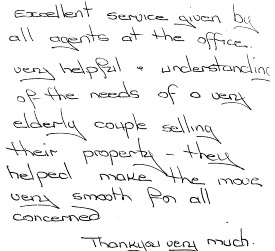 Excellent service given by
all agents at the office.
very helpful & understanding
of the needs of a very
elderly couple selling
their property - they
helped make the move
very smooth for all
concerned
Thankyou very much.